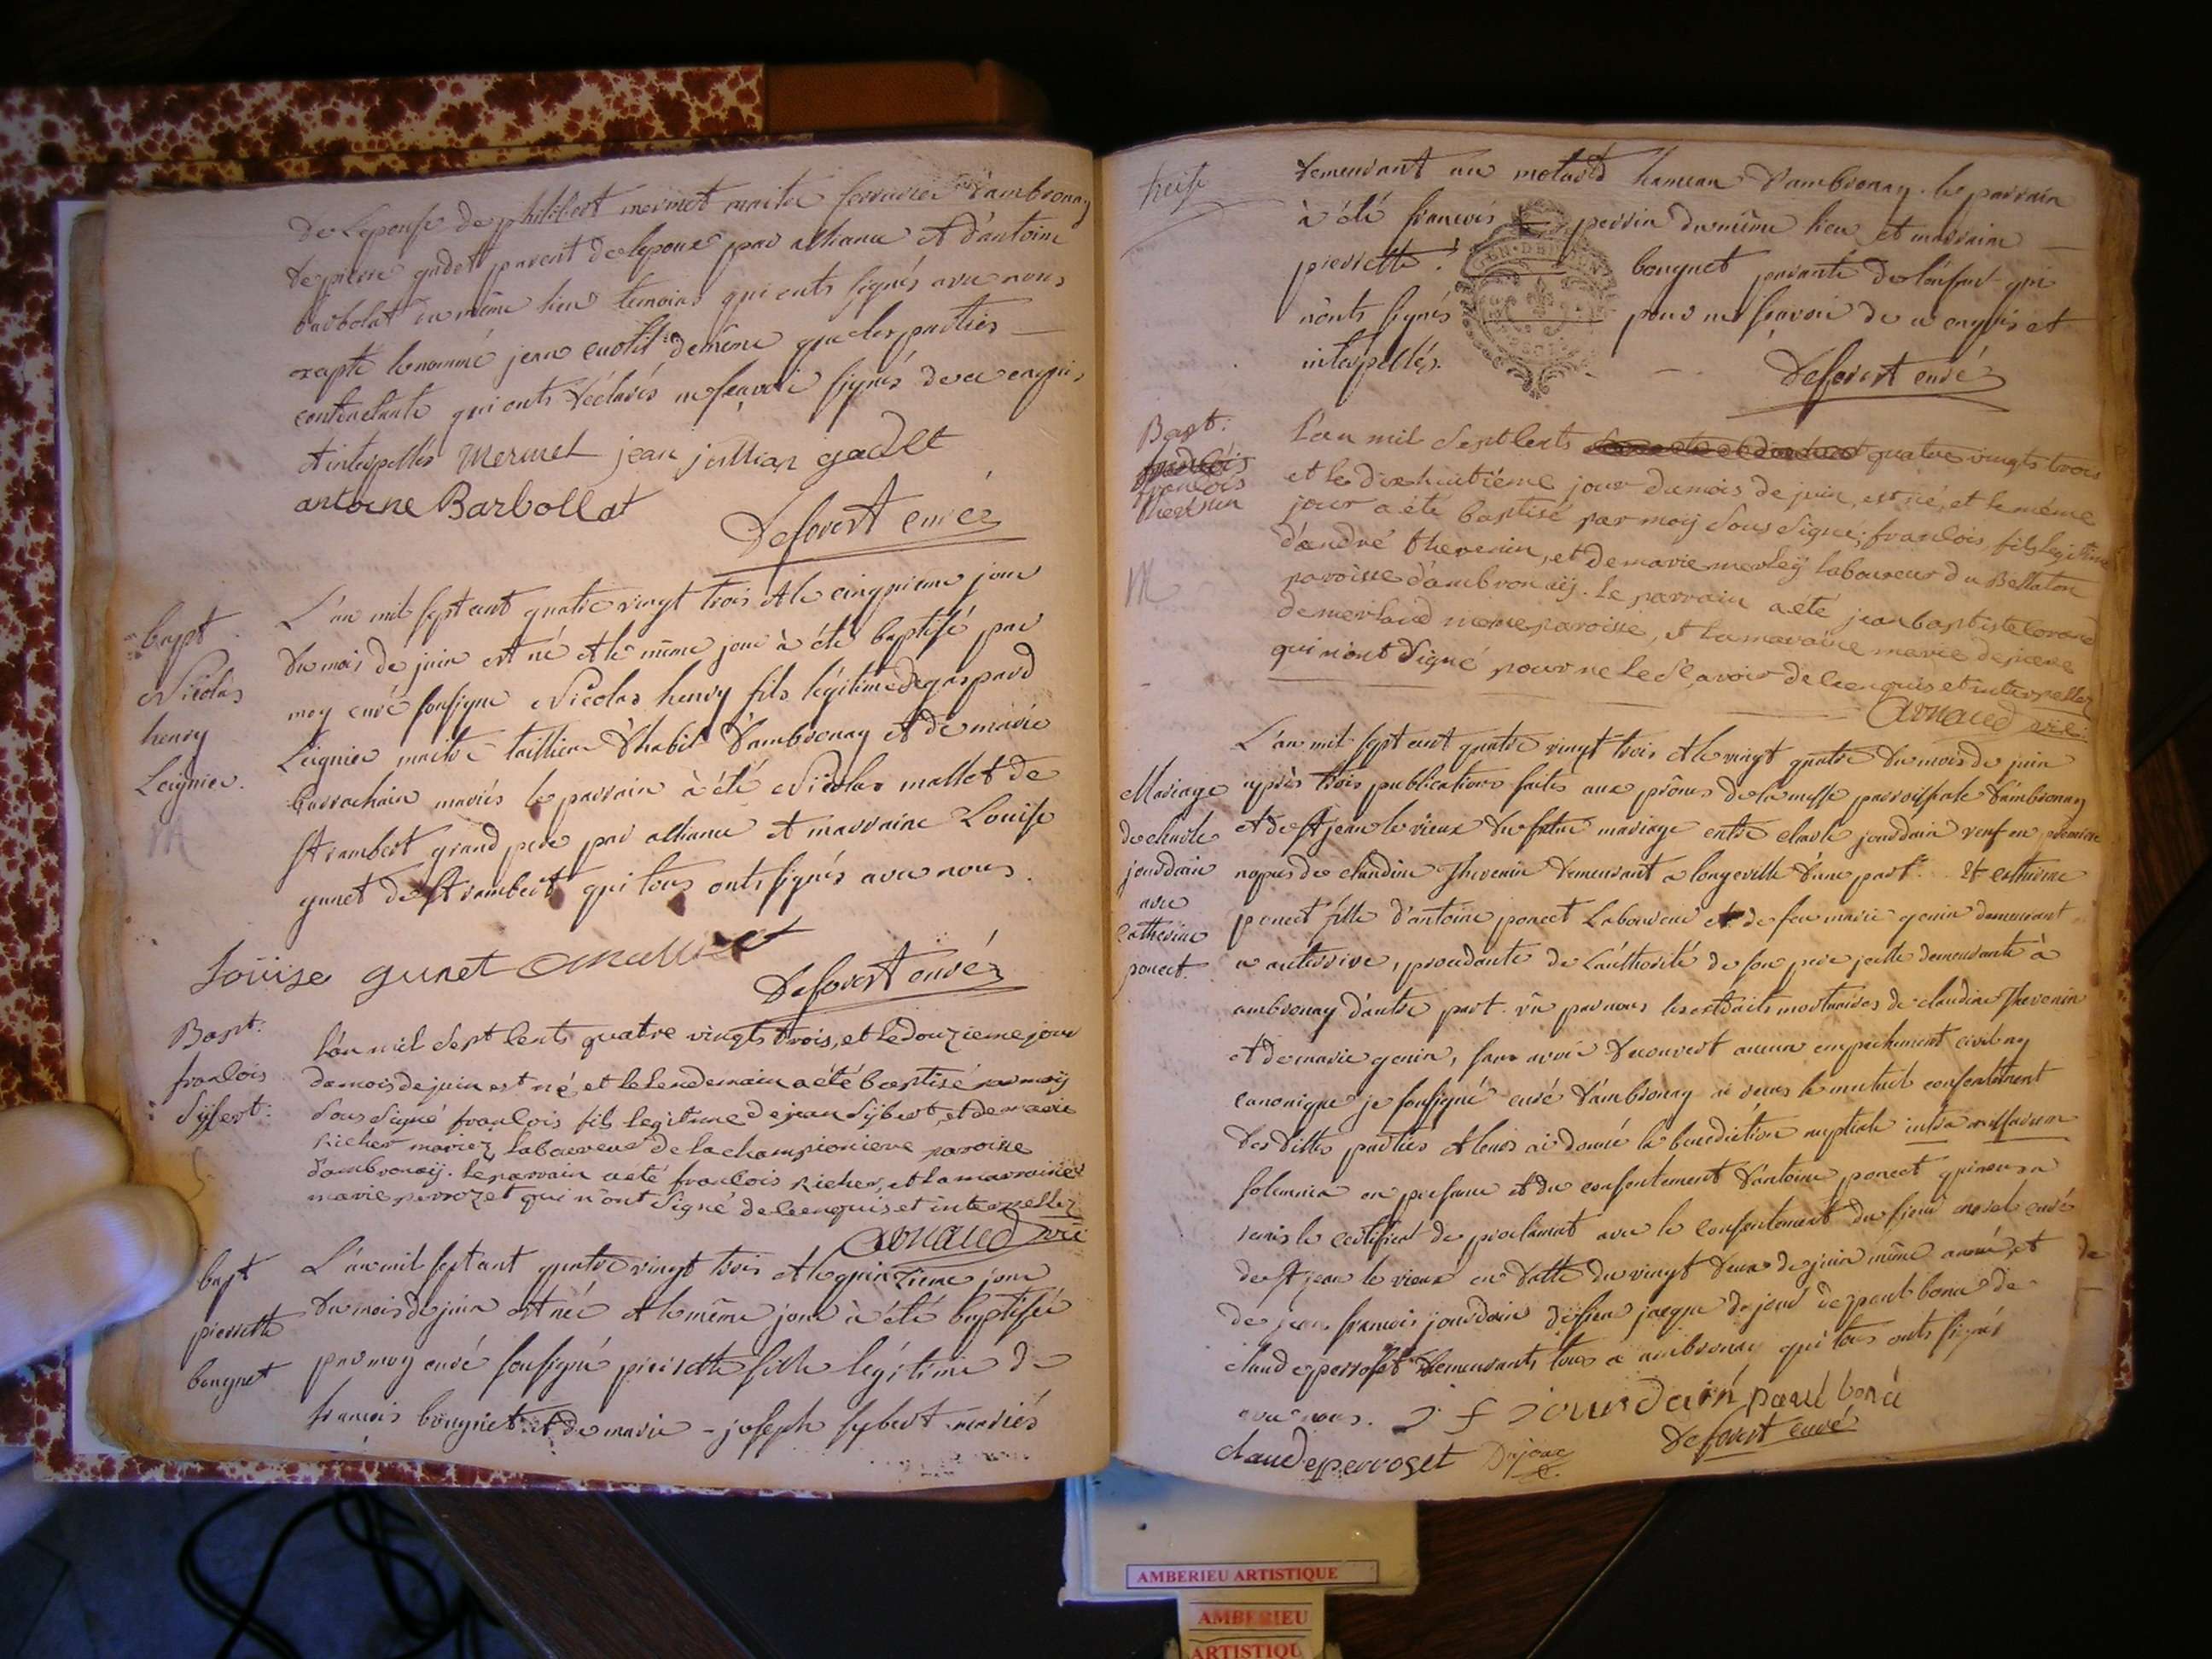 de lepouse de philibert mermet maitre serrurier d'ambronay
de pierre gudet parent de lepoux par alliance et d'antoine
barbolat du même lieu temoins qui onts signés avec nous
excepté le nommé jean de même que les parties
contractante qui onts déclarés ne sçavoir signés de ce enquis
et interpellés Mermet jean jullian gadet
antoine Barbollat
Deforest curé
bapt
Nicolas
henry
Leignier.
L'an mil sept cent quatre vingt trois et le cinquieme jour
du mois de juin est né et le même jour à été baptisé par
moy curé soussigné Nicolas henry fils légitime de gaspard
Leignier maitre taillieur d'habit d'ambronay et de marie
barrachain mariés le parrain à été Nicolas mallet de
St rambert grand pere par alliance et marraine Louise
gunet de St rambert qui tous onts signés avec nous.
Loüise gunet Mallet
Deforest curé
Bapt:
francois
Sybert:
L'an mil sept cents quatre vingts trois, et le douzieme jour
du mois de juin est né et le lendemain a été baptisé par moÿ
sous signé francois fils legitime de jean Sÿbert, et de marie
Richer mariez, laboureur de la championiere paroisse
d'ambronaÿ. le parrain a eté francois Richer, et la marraine
marie perrozet qui n'ont signé de ce enquis et interpellez
Arnaud vic:
bapt
pierrette
bouquet
L'an mil sept cent quatre vingt trois et le quinzieme jour
du mois de juin est née et le même jour à été baptisée
par moy curé soussigné pierrette fille légitime de
francois bouquet et de marie - joseph sybert mariés
treise
demeurant au molard hameau d'ambronay. le parrain
à été francois perrin du même lieu et marraine
pierrette bouquet parante de l'enfant qui
n'onts signés pour ne sçavoir de ce enquis et
interpellés.
Deforest curé
Bapt:
francois
thevenin
L'an mil sept cents quatre vingts trois
et le dix huitième jour du mois de juin, est né, et le même
jour a été baptisé par moÿ sous signé; francois, fils legitime
d'andré thevenin, et de marie merleÿ laboureur du Bellaton
paroisse d'ambronaÿ. Le parrain a été jean baptiste
de merland meme paroisse, et la maraine marie dejuere
qui n'ont signé pour ne le sçavoir de ce enquis et interpellez
Arnaud vic:
Mariage
de charle
jourdain
avec
catherine
poncet
L'an mil sept cent quatre vingt trois et le vingt quatre du mois de juin
après trois publications faites aux prônes de la messe parroissiale d'ambronay
et de St jean le vieux du futur mariage entre charle jourdain veuf en premiere
nopces de claudine Thevenin demeurant a longeville d'une part. Et catherine
poncet fille d'antoine poncet laboureur et de feu marie genin demeurant
a autterive, procedante de l'authorité de son pere icelle demeurante à
ambronay d'autre part. vû par nous les extraits mortuaires de claudine Thevenin
et de marie genin, sans avoir découvert aucun empechement civil ny
canonique je soussigné curé d'ambronay ai reçus le mutuel consentement
des dittes parties et leurs ai donné la benediction nuptiale intra missarum
solemnia en presence et du consentement d'antoine poncet qui nous a
remis le certificat de proclamat avec le consentement du sieur morel curé
de St jean le vieux en datte du vingt deux de juin même année, et de
de jean francois jourdain de sieur jacque dejoux de paul bona de
claude perroset demeurants tous a ambronay qui tous onts signés
avec nous. J f Jourdain paul bona
claude perroset Dejoux Deforest curé
AMBERIEU ARTISTIQUE
AMBERIEU
ARTISTIQU